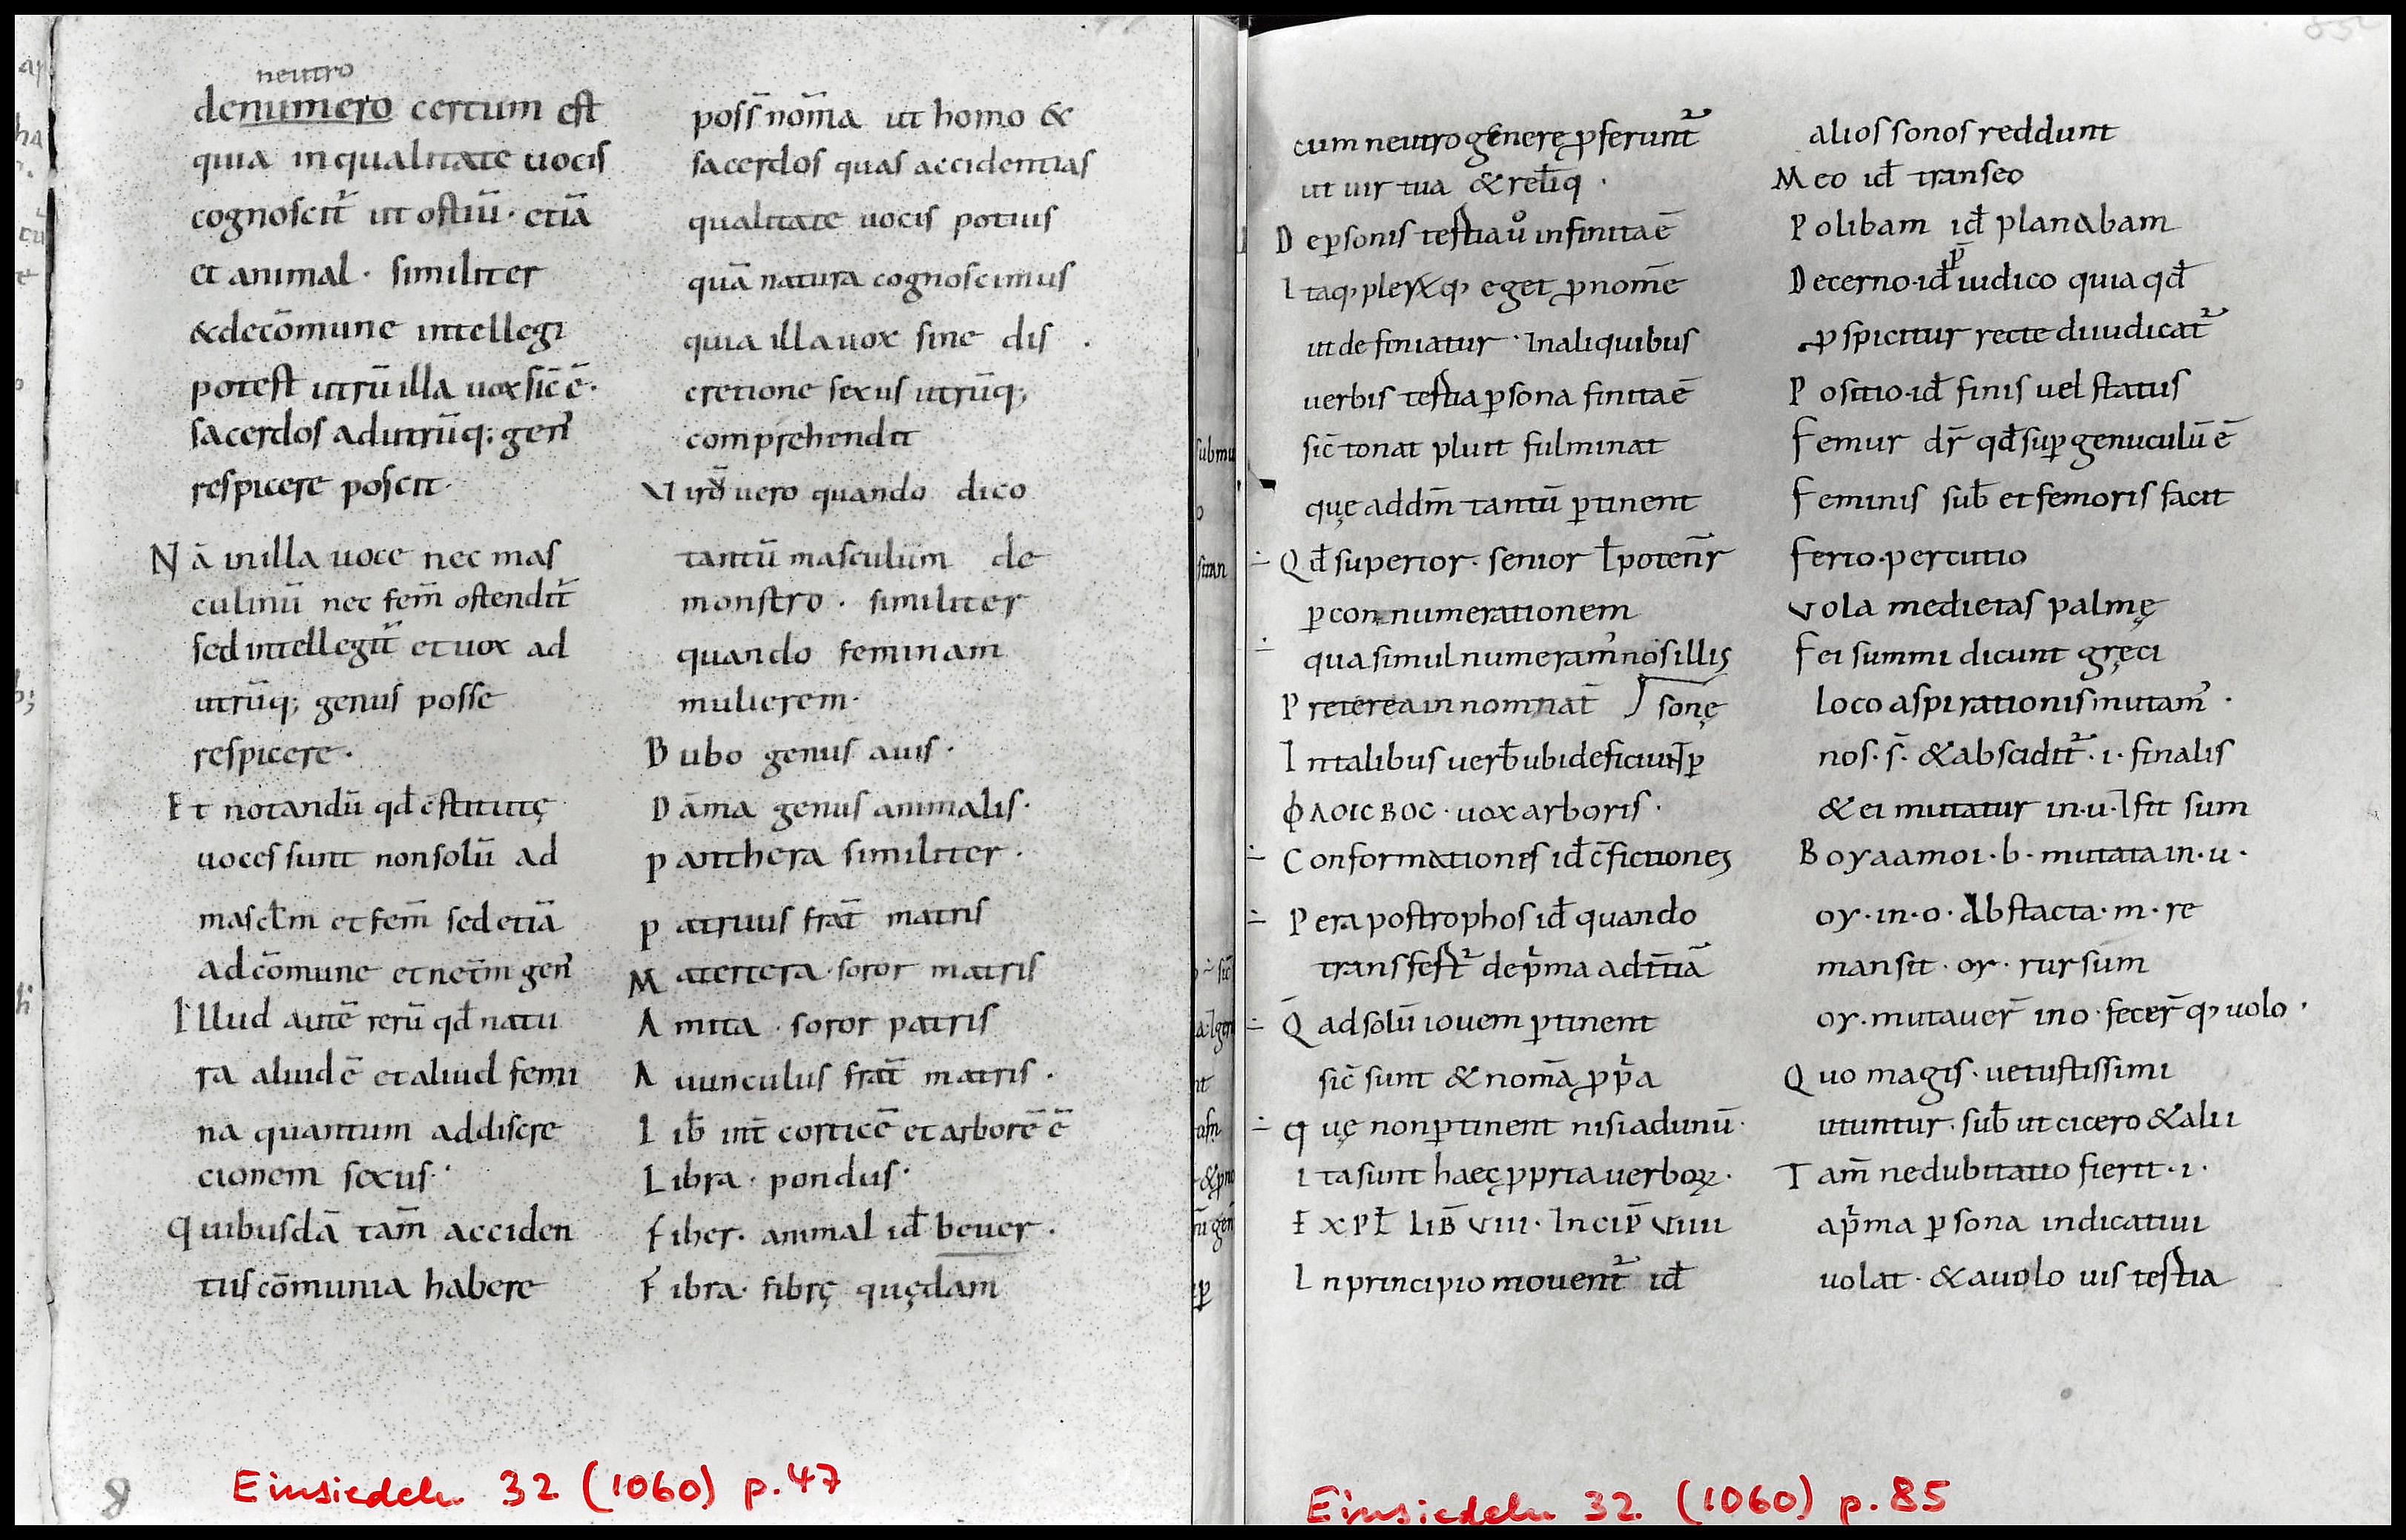 neutro
denumero certum est
quia inqualitate uocis
cognoscit᷑ ut ostiū · etiā
et animal · similiter
&decōmune intellegi
potest utrū illa uox sic̄ ē ·
sacerdos adutrūq; gen̄
respicere possit ·
Nā inilla uoce nec mas
culinū nec fem̄ ostendit᷑
sed intellegit᷑ et uox ad
utrūq; genus posse
respicere ·
Et notandū qđ
uoces sunt nonsolū ad
mascłm et fem̄ sed etiā
adcōmune et neūm gen̄
Illud autē rerū qđ natu
ra aliud ē et aliud femi
na quantum addiscre
cionem sexus ·
Quibusdā tam̄ acciden
tus cōmunia habere
poss̄ nom̄a ut homo &
sacerdos quas accidentias
qualitate uocis potius
quā natura cognoscimus
quia illa uox sine dis
cretione sexus utrūq;
comprehendit
uero quando dico
tantū masculum de
monstro · similiter
quando feminam
mulierem ·
Bubo genus auis ·
Dāma genus animalis ·
panthera similiter ·
patruus frat̄ matris
Matertera · soror matris
Amita · soror patris
Auunculus frat̄ matris ·
Lib̄ int̄ corticē et arborē ē
Libra · pondus ·
fiber · animal id̄ beuer ·
Fibra · fibrę quędam
Einsiedeln 32 (1060) p. 47
cum neutro genere ꝓferunt᷑
ut uir tua & reliq ·
De ꝑsonis testia uͦ infinita ē
Itaqꝫ pleꝝqꝫ eget ꝓnom̄e
ut definiatur · Inaliquibus
uerbis testia ꝑsona finita ē
sic̄ tonat pluit fulminat
quę addm̄ tantū ꝑtinent
Qđ superior · senior ł poten̄r
ꝑ connumerationem
qua simul numeram᷒ nos illis
Preterea in nominat̄ sonę
Intalibus uerb̄ ubi deficiunt ꝑ
ΦΛΟΙCΒΟC · uox arboris ·
Conformationes id̄ c̄fictiones
Per apostrophos id̄ quando
transfert᷑ de p̄ma ad t̄tiā
Q̄ ad solū iouem ꝑtinent
sic̄ sunt & nom̄a ꝓp̄a
quę non ꝑtinent nisi ad unū ·
Ita sunt haec ꝓpria uerboꝝ ·
EXPŁ LIB̄ VIII · INCIP̄ VIIII
In principio mouent᷑ id̄
alios sonos reddunt
Meo id̄ transeo
Polibam id̄ planabam
Decerno · id̄ iudico quia qđ
ꝓspicitur recte diiudicat᷑
Positio · id̄ finis uel status
Femur dr̄ qđ suꝑ genuculū ē
Feminis sub̄ et femoris facit
ferio · percutio
vola medietas palmę
Fei summi dicunt gręci
loco aspirationis mutam᷒ ·
nos · s̄ · & abscidit᷑ · i · finalis
& ei mutatur in · u · ⁊ fit sum
Boyaamoi · b · mutata in · u ·
oy · in · o · Abstacta · m · re
mansit · oy · rursum
oy · mutauer̄ in o · fecer̄ qꝫ uolo ·
Quo magis · uetustissimi
utuntur · sub̄ ut cicero & alii
Tam̄ ne dubitatio fierit · i ·
a p̄ma ꝑsona indicatiui
uolat · & auolo uis testia
Einsiedeln 32 (1060) p. 85